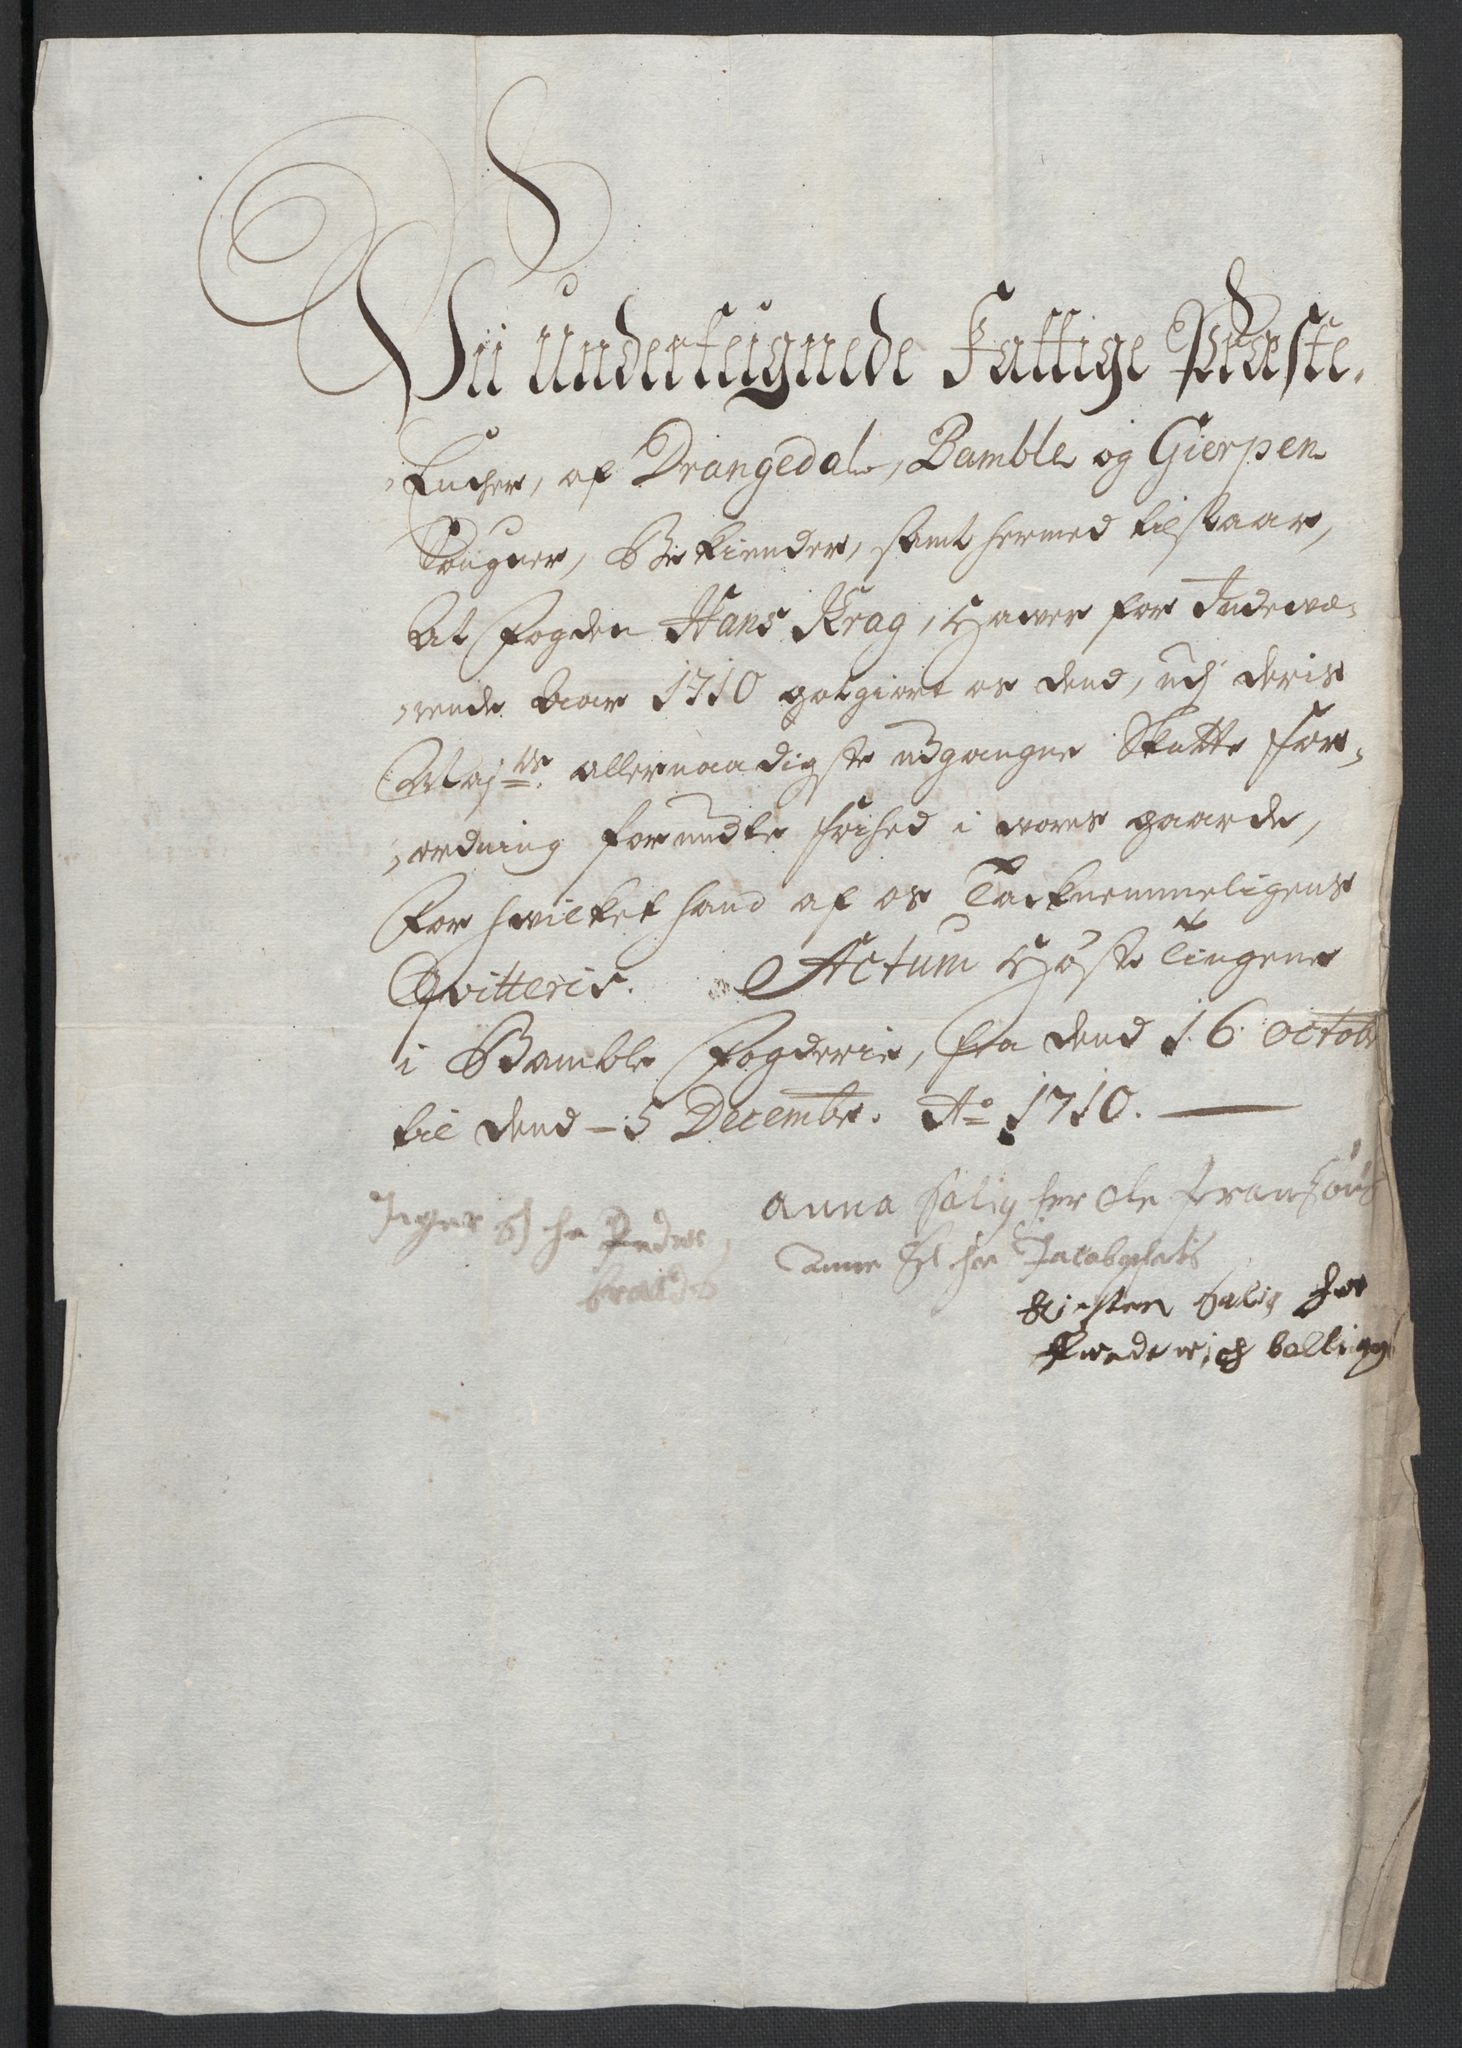 Vii Underteignede Fattige Præste,
,Encher, af Drangedal, Bamble og Gierpen
Sougner, Bekiender, samt hermed tilstaar,
At Fogden Hans Krag, Hawer for Indewæ-
,rende Aar 1710 gotgiort os dend, udj deris
Majts. allernaadigste udgangne Skatte For-
,ordning forundte frihed i wores gaarde,
For hwilket hand af os Tacknemmeligens
Qvitteris. Actum Høste Tingene
i Bamble Fogderie, fra dend 16 octobr
til dend - 5 Decembr. Ao 1710.
Anna Salig her Ole Fransøns
Inger Sl he Peders,
Anne Sl her Jacob
Kirsten Salig her
Frederich